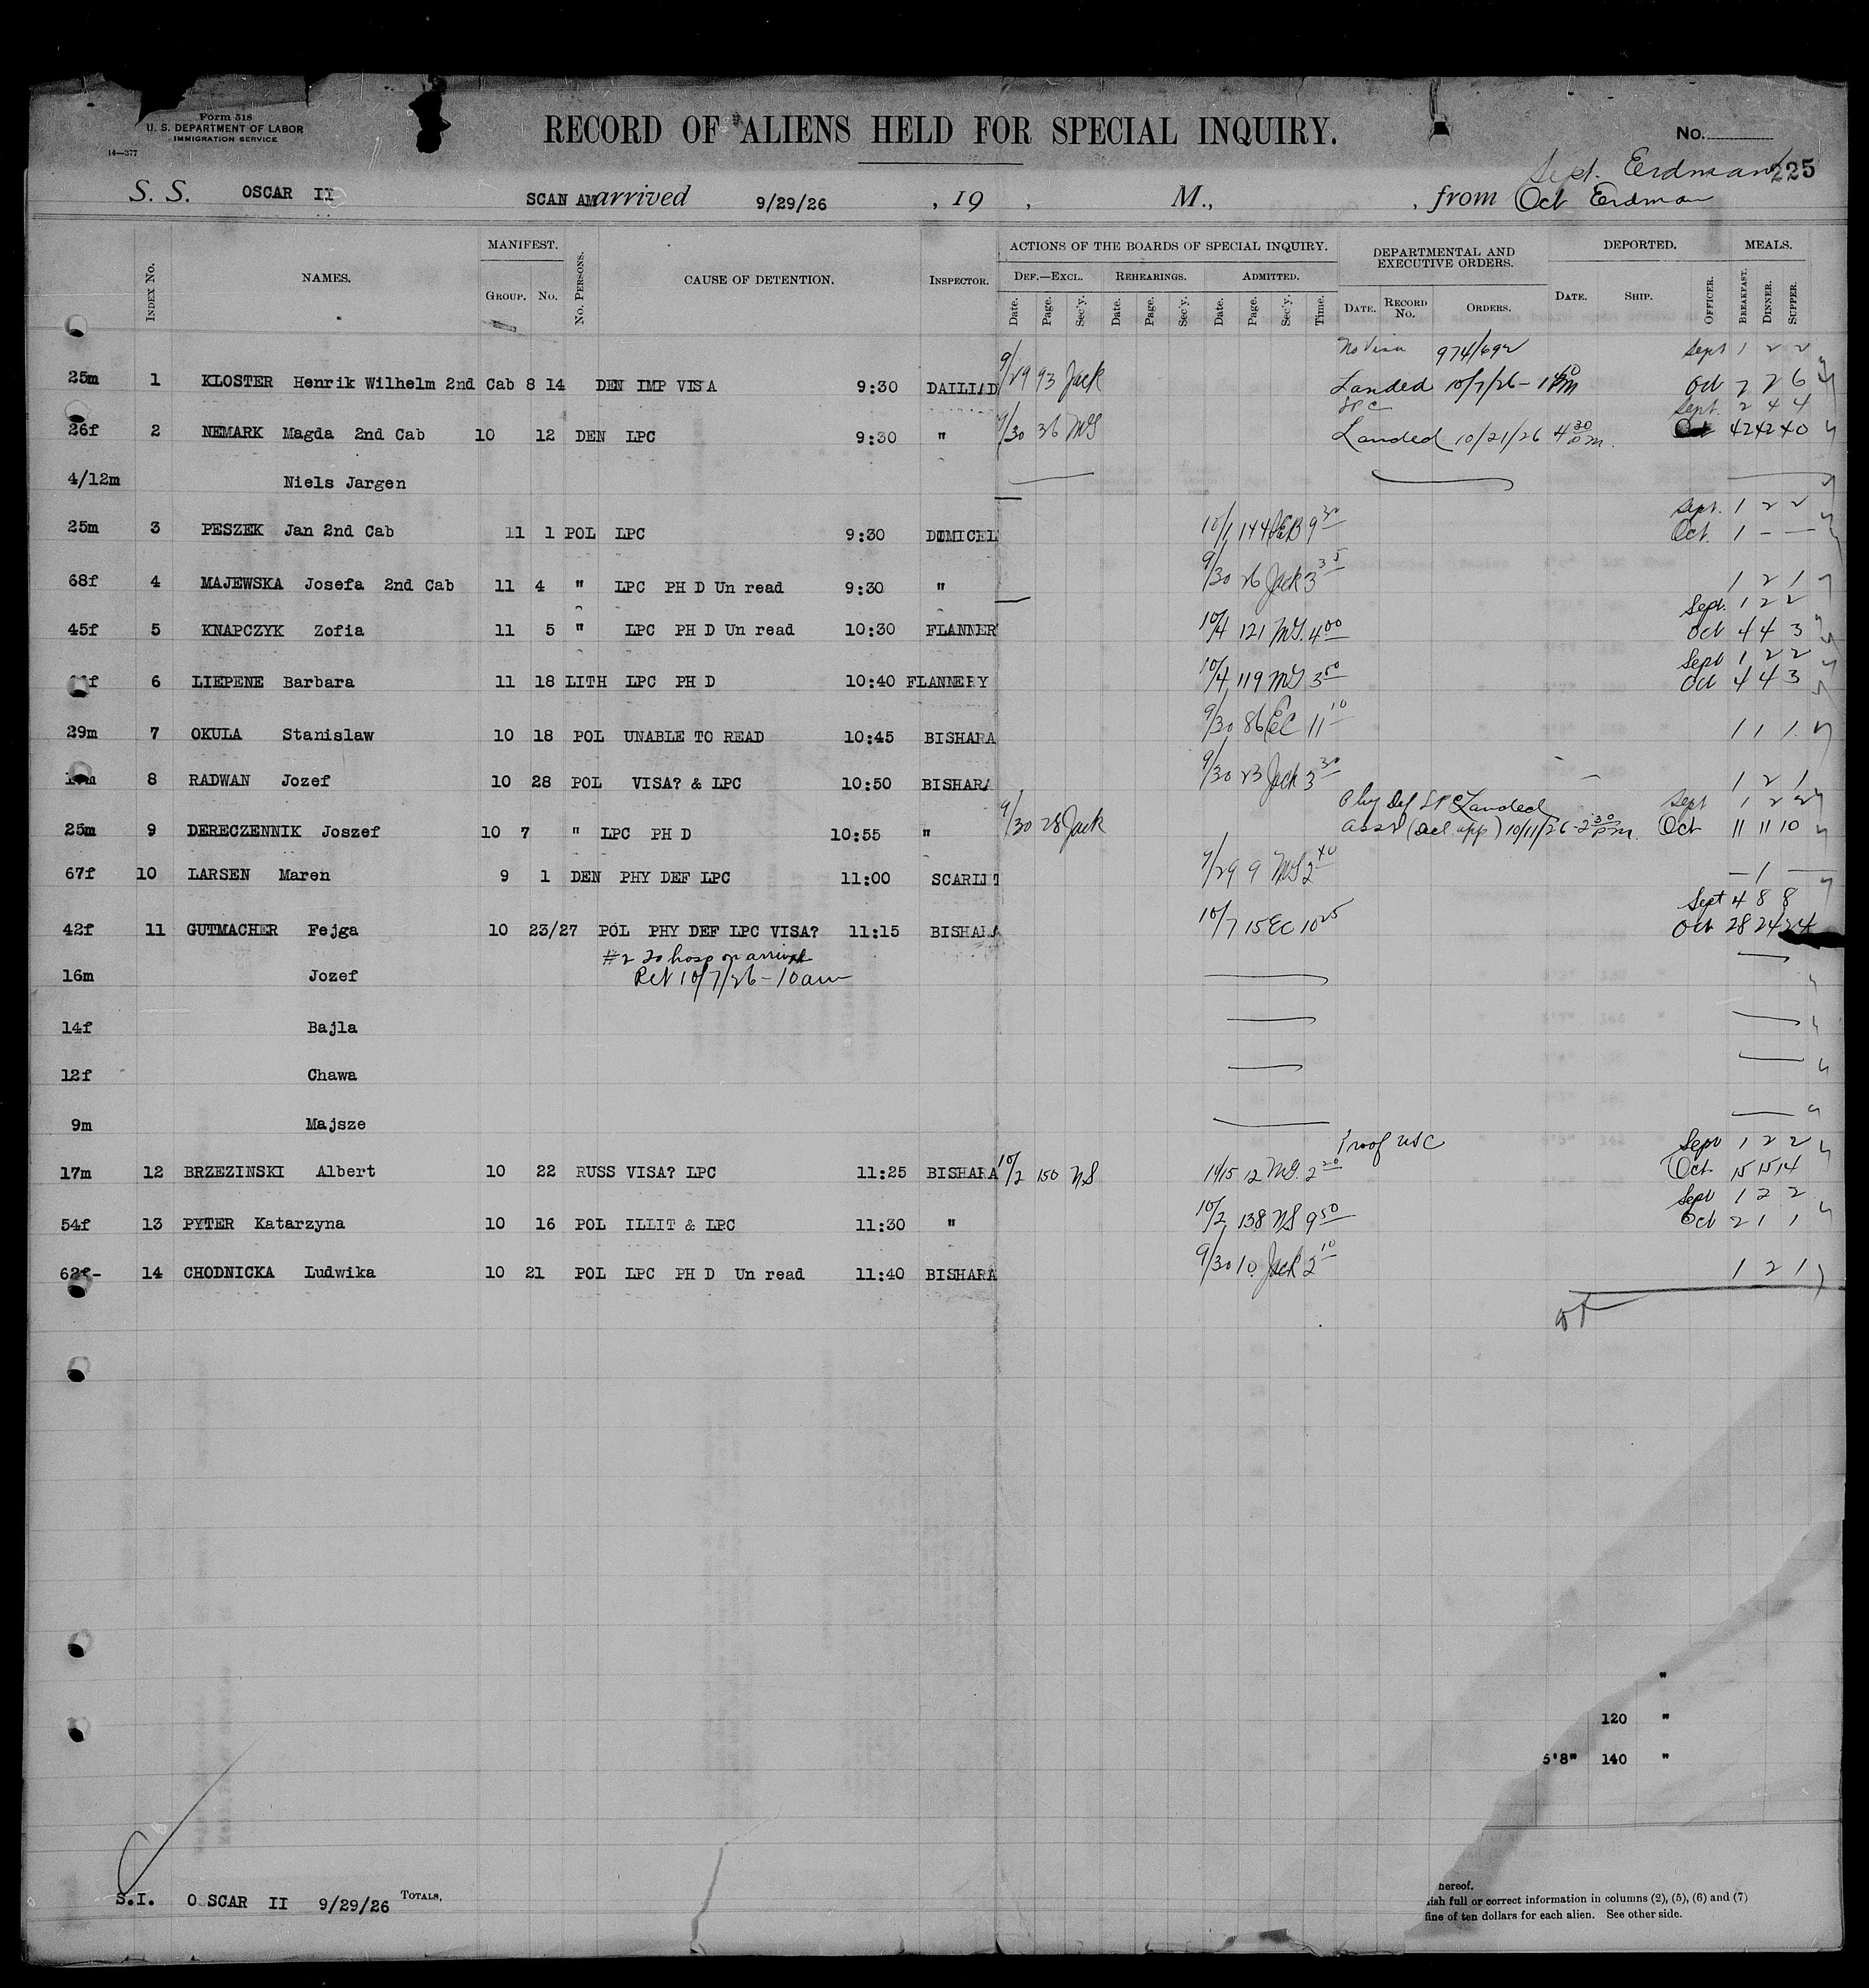 Form 518
U. S. DEPARTMENT OF LABOR
IMMIGRATION SERVICE
14—377
RECORD OF ALIENS HELD FOR SPECIAL INQUIRY.
No.
Sept. Erdman 225
S. S. OSCAR II SCAN AM arrived 9/29/26 , 19 , M., , from Oct Erdman
INDEX No. NAMES. MANIFEST. GROUP. No. No. PERSONS. CAUSE OF DETENTION. INSPECTOR. ACTIONS OF THE BOARDS OF SPECIAL INQUIRY. DEF.—EXCL. Date. Page. Sec'y. REHEARINGS. Date. Page. Sec'y. ADMITTED. Date. Page. Sec'y. Time. DEPARTMENTAL AND EXECUTIVE ORDERS. DATE. RECORD No. ORDERS. DEPORTED. DATE. SHIP. OFFICER. MEALS. BREAKFAST. DINNER. SUPPER.
No Visa 974/692 Sept 1 2 2
25m 1 KLOSTER Henrik Wilhelm 2nd Cab 8 14 DEN IMP VISA 9:30 DAILIAD 9/29 93 Jack Landed 10/7/26 Oct 7 7 6
LPC Sept. 2 4 4
26f 2 NEMARK Magda 2nd Cab 10 12 DEN LPC 9:30 " 9/30 36 MG Landed 10/21/26 4 30 pm. Oct 42 42 40
4/12m Niels Jargen
Sept. 1 2 2
25m 3 PESZEK Jan 2nd Cab 11 1 POL LPC 9:30 DIMICEL 10/1 144 9 30 Oct. 1 — —
68f 4 MAJEWSKA Josefa 2nd Cab 11 4 " LPC PH D Un read 9:30 " 9/30 26 Jack 3 35 1 2 1
Sept. 1 2 2
45f 5 KNAPCZYK Zofia 11 5 " LPC PH D Un read 10:30 FLANNER 10/4 121 MG. 4 00 Oct 4 4 3
Sept 1 2 2
f 6 LIEPENE Barbara 11 18 LITH LPC PH D 10:40 FLANNERY 10/4 119 MG 3 50 Oct 4 4 3
29m 7 OKULA Stanislaw 10 18 POL UNABLE TO READ 10:45 BISHARA 9/30 86 EC 11 10 1 1 1
m 8 RADWAN Jozef 10 28 POL VISA? & LPC 10:50 BISHARA 9/30 23 Jack 3 30 1 2 1
Phy Def LPC Landed Sept 1 2 2
25m 9 DERECZENNIK Joszef 10 7 " LPC PH D 10:55 " 9/30 28 Jack 10/11/26 - 2 30 pm. Oct 11 11 10
67f 10 LARSEN Maren 9 1 DEN PHY DEF LPC 11:00 SCARLIT 9/29 9 MG 2 40 — 1 —
Sept 4 8 8
42f 11 GUTMACHER Fejga 10 23/27 POL PHY DEF LPC VISA? 11:15 BISHARA 10/7 15 EC 10 25 Oct 28 24 24
#2 To hosp on arrival
16m Jozef Ret 10/7/26 - 10 am
14f Bajla
12f Chawa
9m Majsze
Proof USC Sept 1 2 2
17m 12 BRZEZINSKI Albert 10 22 RUSS VISA? LPC 11:25 BISHARA 10/2 150 NS 10/15 12 MG. 2 20 Oct. 15 15 14
Sept 1 2 2
54f 13 PYTER Katarzyna 10 16 POL ILLIT & LPC 11:30 " 10/2 138 NS 9 50 Oct 2 1 1
62f- 14 CHODNICKA Ludwika 10 21 POL LPC PH D Un read 11:40 BISHARA 9/30 10 Jack 2 10 1 2 1
"
120 "
5'8" 140 "
hereof.
ish full or correct information in columns (2), (5), (6) and (7)
fine of ten dollars for each alien. See other side.
S.I. O SCAR II 9/29/26 TOTALS,